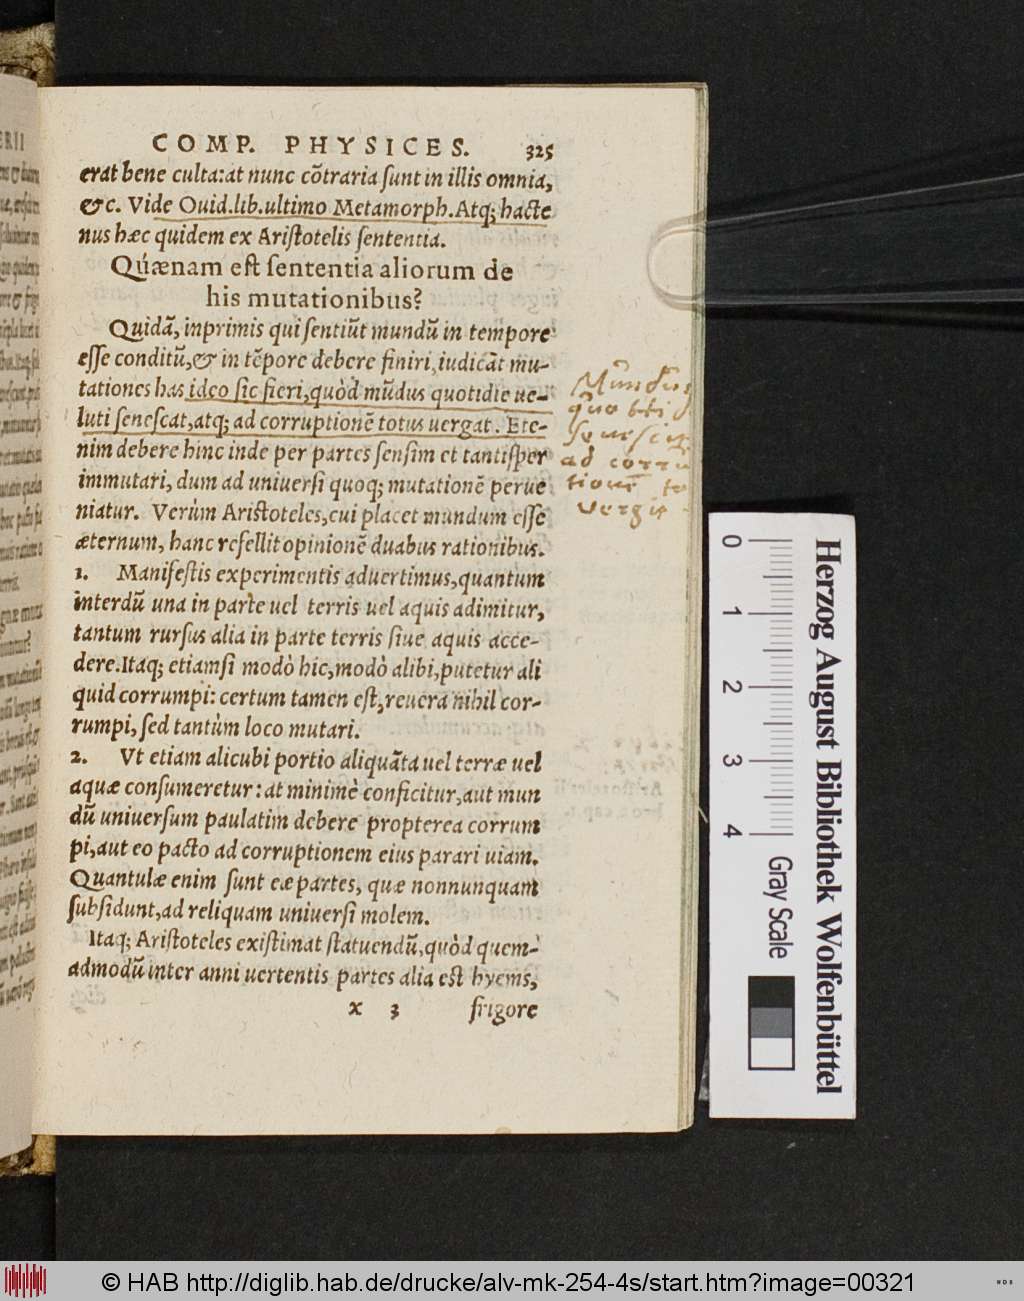 COMP. PHYSICES. 325
erat bene culta:at nunc cõtraria ſunt in illis omnia,
&c. Vide Ouid.lib.ultimo Metamorph.Atq; hacte
nus hæc quidem ex Ariſtotelis ſententia.
Quænam eſt ſententia aliorum de
his mutationibus?
Quidã, inprimis qui ſentiũt mundũ in tempore
eſſe conditũ,& in tẽpore debere finiri, iudicãt mu-
tationes has ideo ſic fieri,quòd mũdus quotidie ue-
luti ſeneſcat,atq; ad corruptionẽ totus uergat. Ete-
nim debere hinc inde per partes ſenſim et tantiſper
immutari, dum ad uniuerſi quoq; mutationẽ perue
niatur. Verùm Ariſtoteles,cui placet mundum eſſe
æternum, hanc refellit opinionẽ duabus rationibus.
1. Manifeſtis experimentis aduertimus,quantum
interdũ una in parte uel terris uel aquis adimitur,
tantum rurſus alia in parte terris ſiue aquis acce-
dere.Itaq; etiamſi modò hic,modò alibi,putetur ali
quid corrumpi: certum tamen eſt,reuera nihil cor-
rumpi, ſed tantùm loco mutari.
2. Vt etiam alicubi portio aliquãta uel terræ uel
aquæ conſumeretur: at minimè conficitur,aut mun
dũ uniuerſum paulatim debere propterea corrum
pi,aut eo pacto ad corruptionem eius parari uiam.
Quantulæ enim ſunt eæ partes, quæ nonnunquam
ſubſidunt,ad reliquam uniuerſi molem.
Itaq; Ariſtoteles exiſtimat ſtatuendũ,quòd quem-
admodũ inter anni uertentis partes alia eſt hyems,
x 3 frigore
Mundus
ſeneſcit
ad corru
tionẽ
vergit
0 1 2 3 4
Gray Scale
Herzog August Bibliothek Wolfenbüttel
© HAB http://diglib.hab.de/drucke/alv-mk-254-4s/start.htm?image=00321